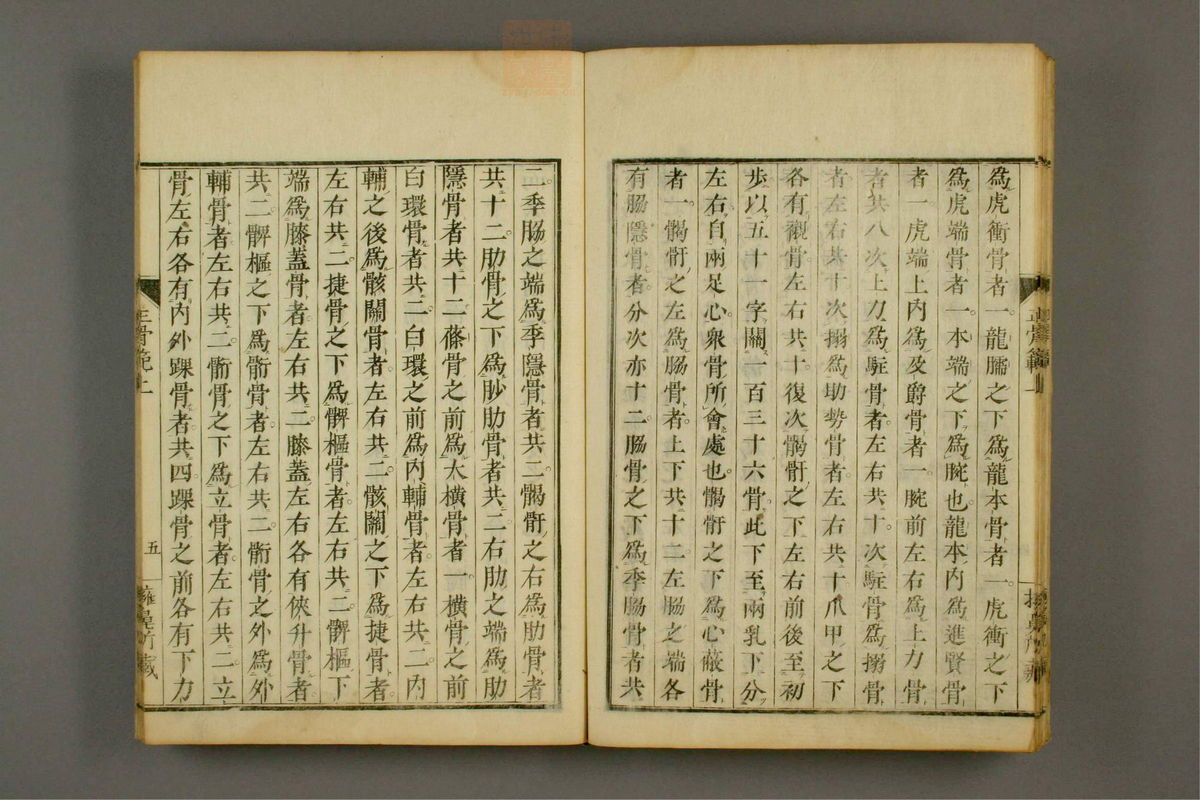 爲虎衝骨者一龍臑之下爲龍本骨者一虎衝之下
爲虎端骨者一本端之下爲腕也龍本内爲進賢骨
者一虎端上内爲及爵骨者一腕前左右爲上力骨
者共八次上力爲駐骨者左右共十次駐骨爲搦骨
者左右共十次搦爲助勢骨者左右共十爪甲之下
各有襯骨左右共十復次髑骬之下左右前後至初
步以五十一字關一百三十六骨此下至兩乳下分
左右自兩足心衆骨所會處也髑骬之下爲心蔽骨
者一髑骬之左爲脇骨者上下共十二左脇之端各
有脇隱骨者分次亦十二脇骨之下爲季脇骨者共
正骨範上
二季脇之端爲季隱骨者共二髑骬之右爲肋骨者
共十二肋骨之下爲䏚肋骨者共二右肋之端爲肋
隱骨者共十二條骨之前爲大横骨者一横骨之前
白環骨者共二白環之前爲内輔骨者左右共二内
輔之後爲骸關骨者左右共二骸關之下爲捷骨者
左右共二捷骨之下爲髀樞骨者左右共二髀樞下
端爲膝蓋骨者左右共二膝蓋左右各有俠升骨者
共二髀樞之下爲䯒骨者左右共二䯒骨之外爲外
輔骨者左右共二䯒骨之下爲立骨者左右共二立
骨左右各有内外踝骨者共四踝骨之前各有下力
正骨範上
五
擁鼻所藏